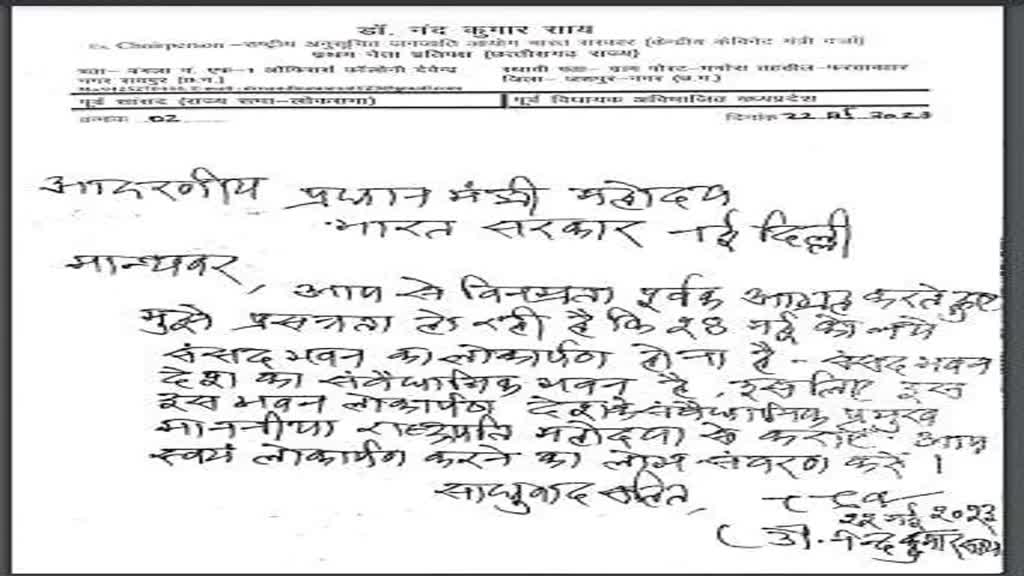 डॉ. नंद कुमार साय
Ex Chairperson – राष्ट्रीय अनुसूचित जनजाति आयोग भारत सरकार (केन्द्रीय केबिनेट मंत्री दर्जा)
प्रथम नेता प्रतिपक्ष (छत्तीसगढ़ राज्य)
पता- बंगला नं. एफ-1 ऑफिसर्स कॉलोनी देवेन्द्र
नगर रायपुर (छ.ग.)
स्थायी पता- ग्राम पोस्ट-मनोरा तहसील-
जिला- जशपुर-नगर (छ.ग.)
पूर्व सांसद (राज्य सभा-लोकसभा)
पूर्व विधायक अविभाजित मध्यप्रदेश
क्रमांक 02
दिनांक 22 मई 2023
आदरणीय प्रधान मंत्री महोदय
भारत सरकार नई दिल्ली
मान्यवर,
आप से विनम्रता पूर्वक आग्रह करते हुए
मुझे प्रसन्नता हो रही है कि २८ मई को नये
संसद भवन का लोकार्पण होना है - संसद भवन
देश का संवैधानिक भवन है, इस लिए इस
इस भवन लोकार्पण देश के संवैधानिक प्रमुख
माननीया राष्ट्रपति महोदया से कराएं आप
स्वयं लोकार्पण करने का लोभ संवरण करें ।
साधुवाद सहित,
२२ मई २०२३
(डॉ. नन्दकुमार साय